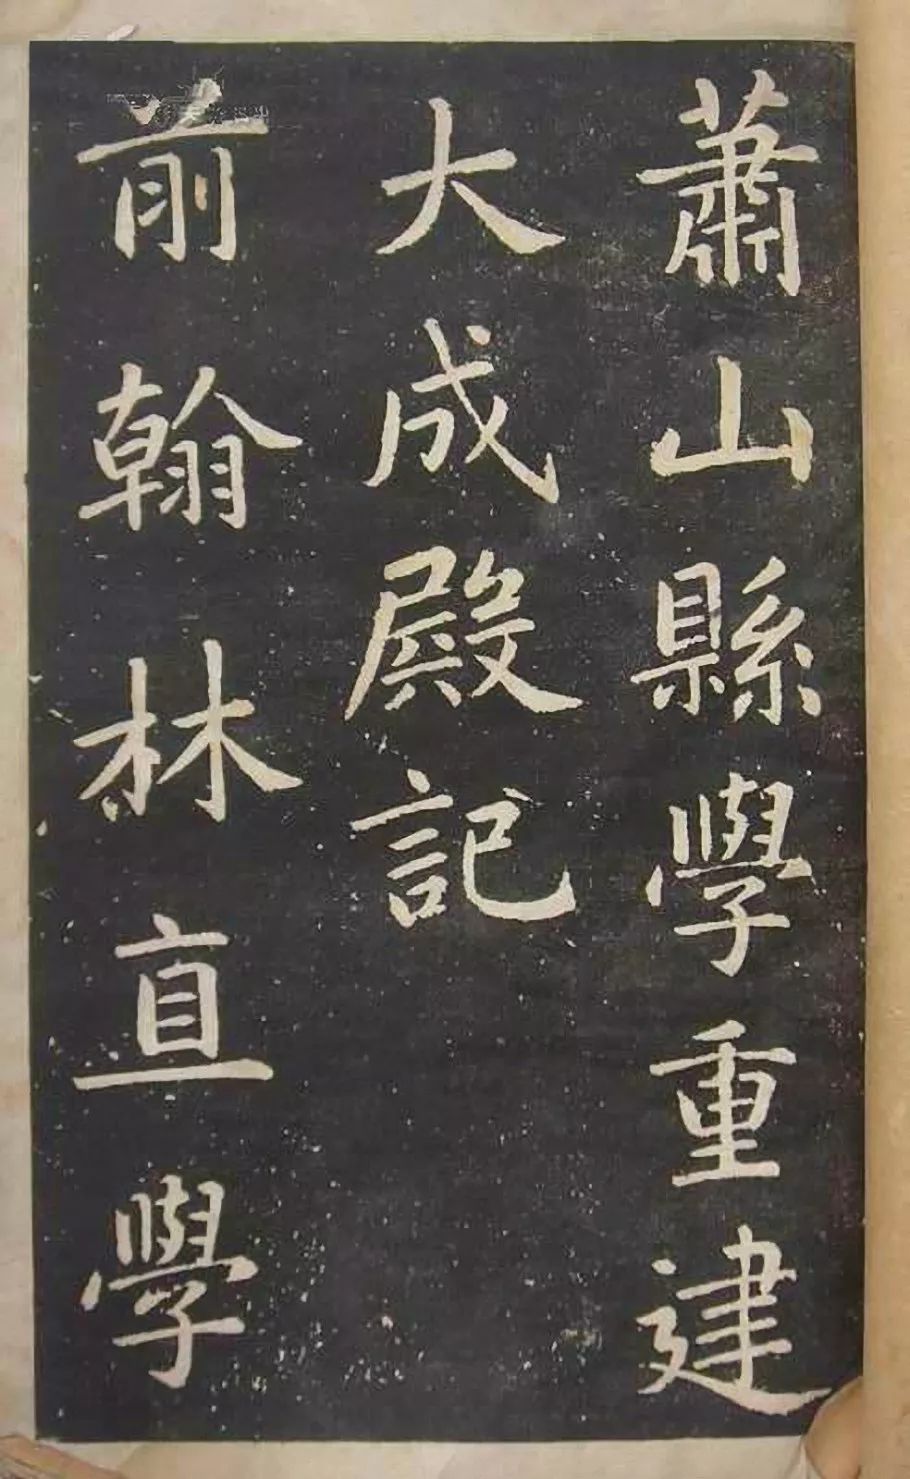 蕭山縣學重建
大成殿記
前翰林直學